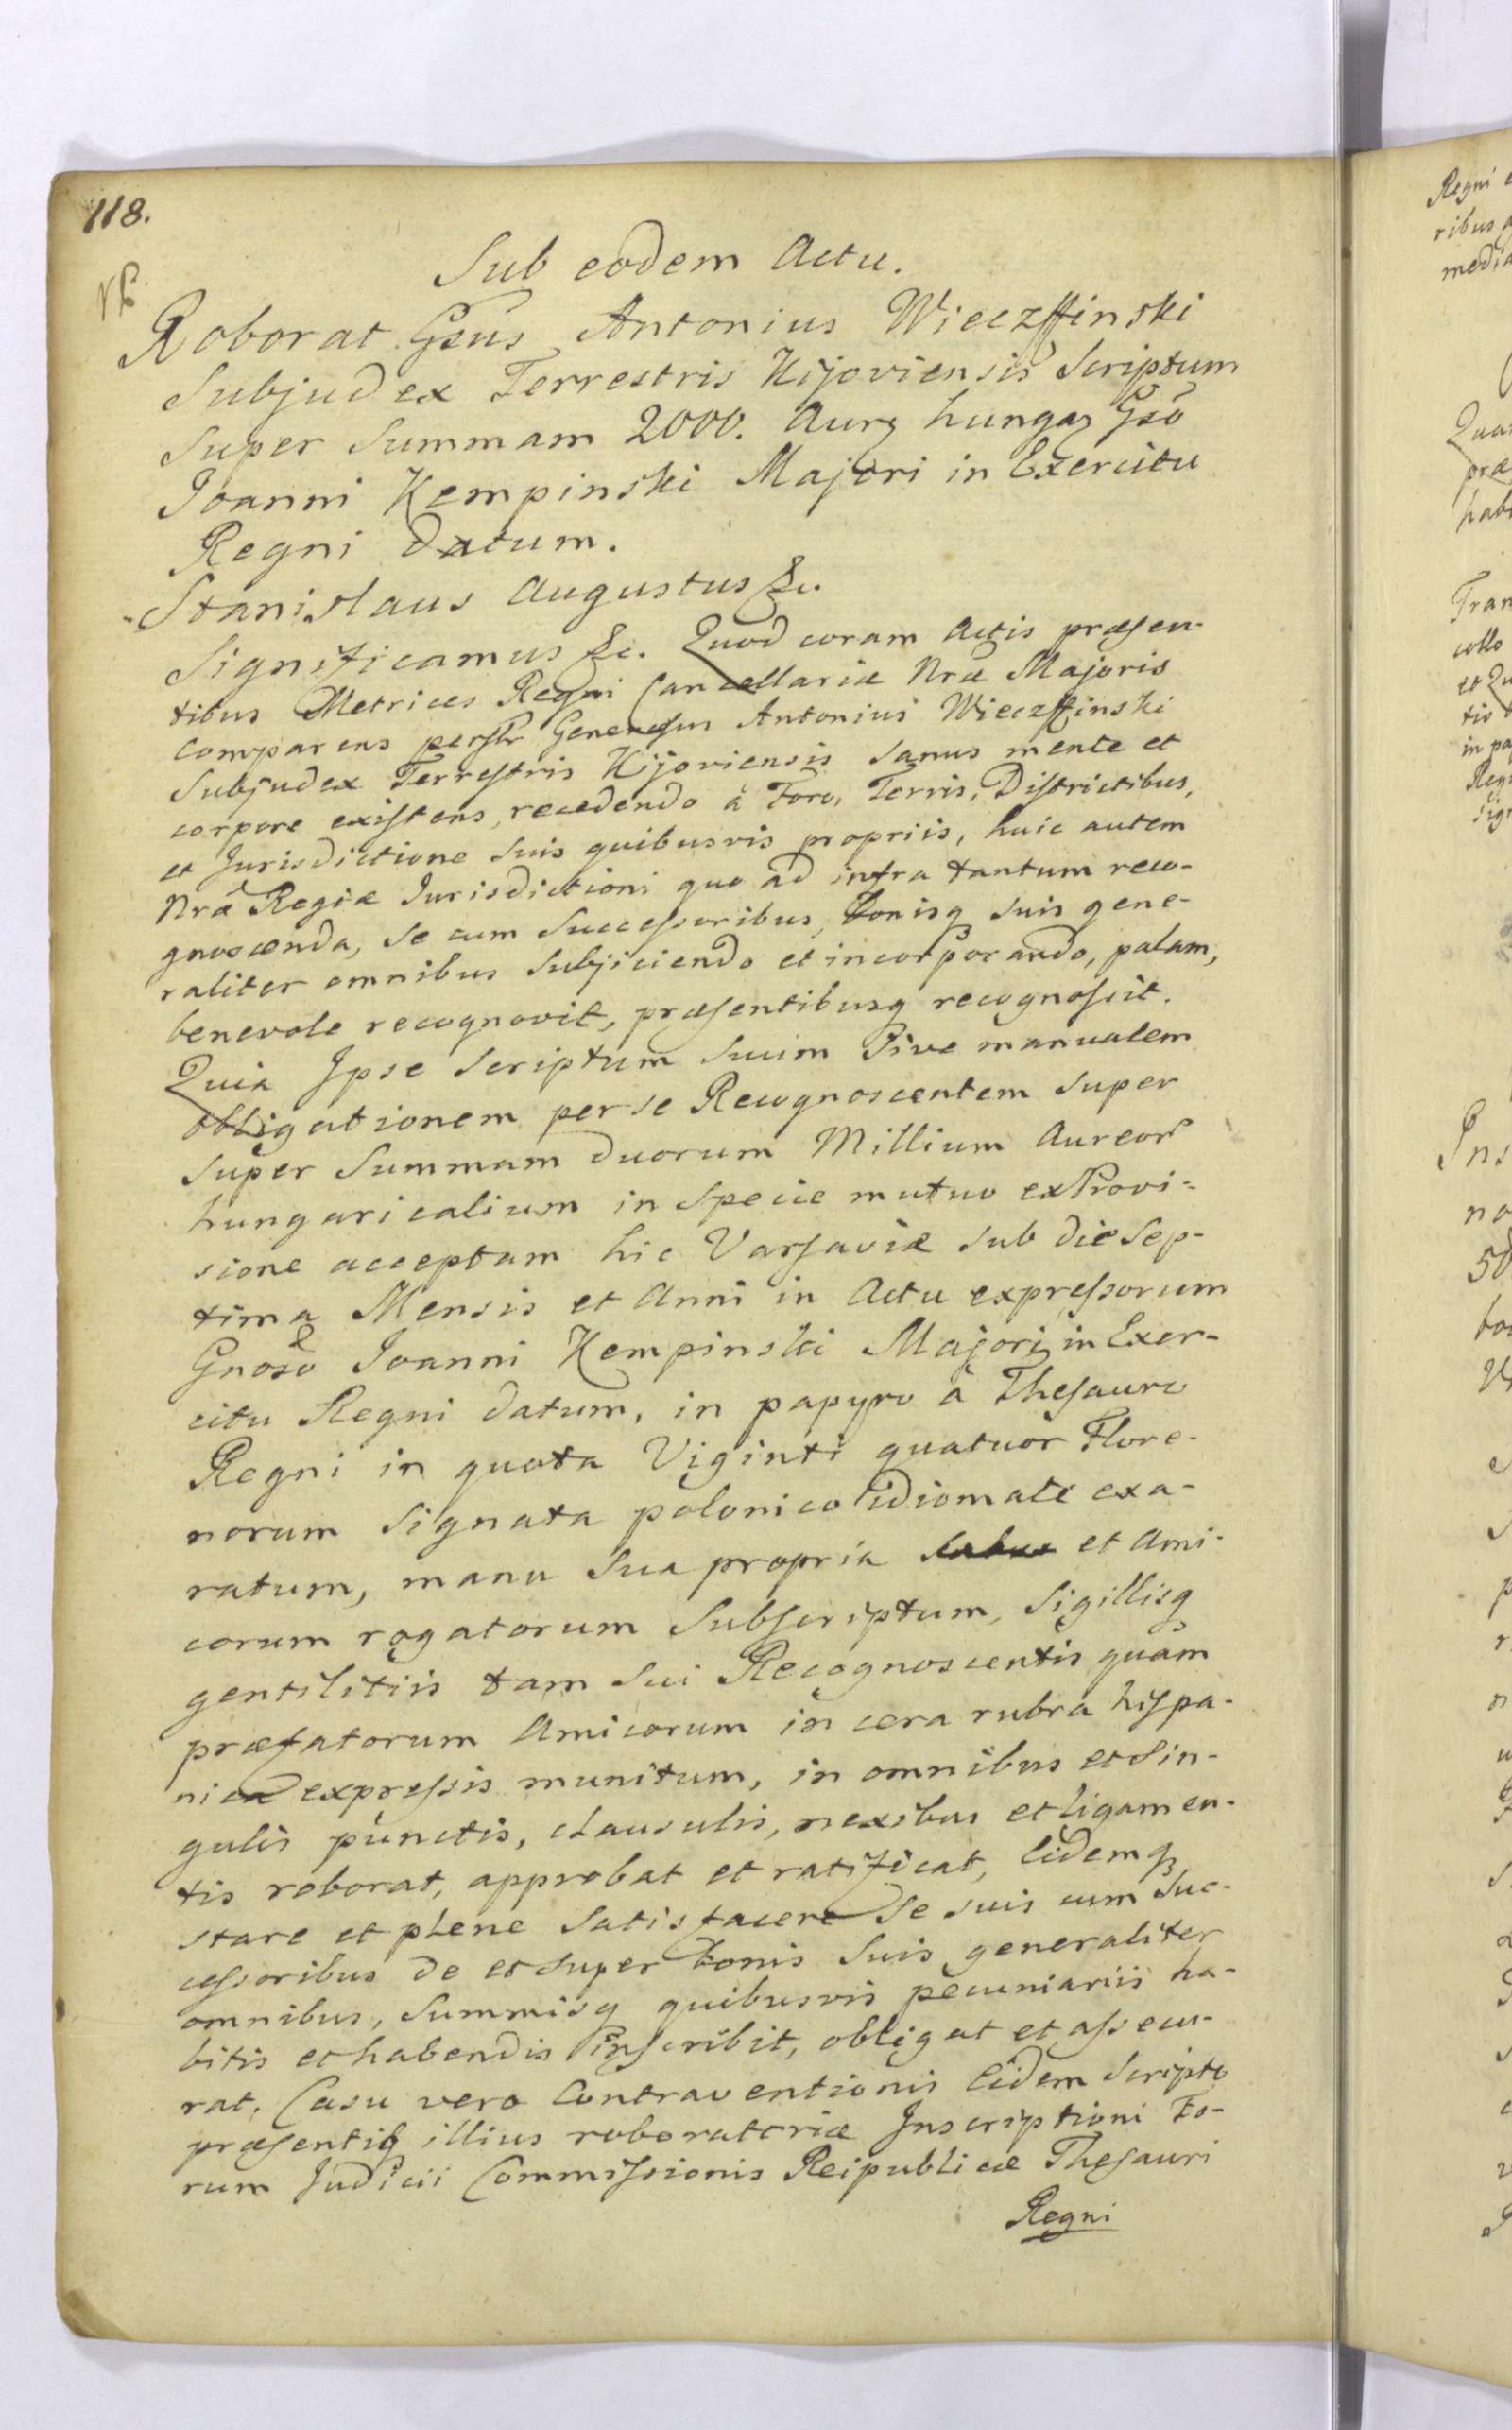 118.
Sub eodem Actu.
Roborat Gsus Antonius Wieczffinski
Subjudex Terrestris Kijoviensis Scriptum
super Summam 2000. Aur hunga Gso
Joanni Kempinski Majori in Exercitu
Regni datum.
Stanislaus Augustus &c.
Significamus &c. Quod coram Actis præsen-
tibus Metrices Regni Cancellariæ Nræ Majoris
comparens persltr Generosus Antonius Wieczffinski
Subjudex Terrestris Kijoviensis sanus mente et
corpore existens, recedendo à Foro, Terris, Districtibus,
et Jurisdictione suis quibusvis propriis, huic autem
Nræ Regiæ Jurisdictioni quo ad infra tantum reco-
gnoscenda, se cum Successoribus, bonisq suis gene-
raliter omnibus subjiciendo et incorporando, palam,
benevole recognovit, præsentibusq recognoscit.
Quia Ipse Scriptum suum sive manualem
obligationem per se Recognoscentem super
super Summam duorum Millium Aureor
hungaricalium in specie mutuo ex Provi-
sione acceptam hic Varsaviæ sub die Sep-
tima Mensis et Anni in Actu expressorum
Gnoso Joanni Kempinski Majori in Exer-
citu Regni datum, in papyro à Thesauro
Regni in quota Viginti quatuor Flore-
norum signata polonico idiomate exa-
ratum, manu sua propria et Ami-
corum rogatorum subscriptum, sigillisq
gentilitiis tam sui Recognoscentis quàm
præfatorum Amicorum in cera rubra hispa-
nica expressis munitum, in omnibus et sin-
gulis punctis, clausulis, nexibus et ligamen-
tis roborat, approbat et ratificat, Eidemq
stare et plene satisfacere se suis cum Suc-
cessoribus de et super bonis suis generaliter
omnibus, summisq quibusvis pecuniariis ha-
bitis et habendis inscribit, obligat et assecu-
rat. Casu vero Contraventionis Eidem Scripto
præsentiq illius roboratoriæ Inscriptioni Fo-
rum Judicii Commissionis Reipublicæ Thesauri
Regni